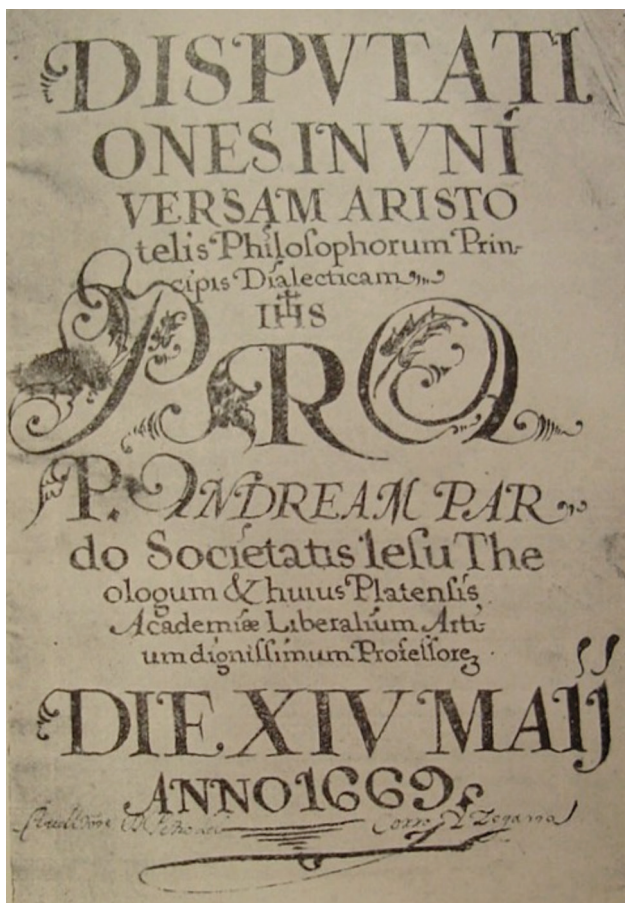 DISPVTATI
ONES IN VNI
VERSAM ARISTO
telis Philoſophorum Prin-
cipis Dialecticam
IHS
PRQ
P. ANDREAM PAR
do Societatis Ieſu The
ologum & huius Platenſis
Academiæ Liberalium Arti-
um digniſſimum Profeſſorez
DIE XIV MAIJ
ANNO 1669